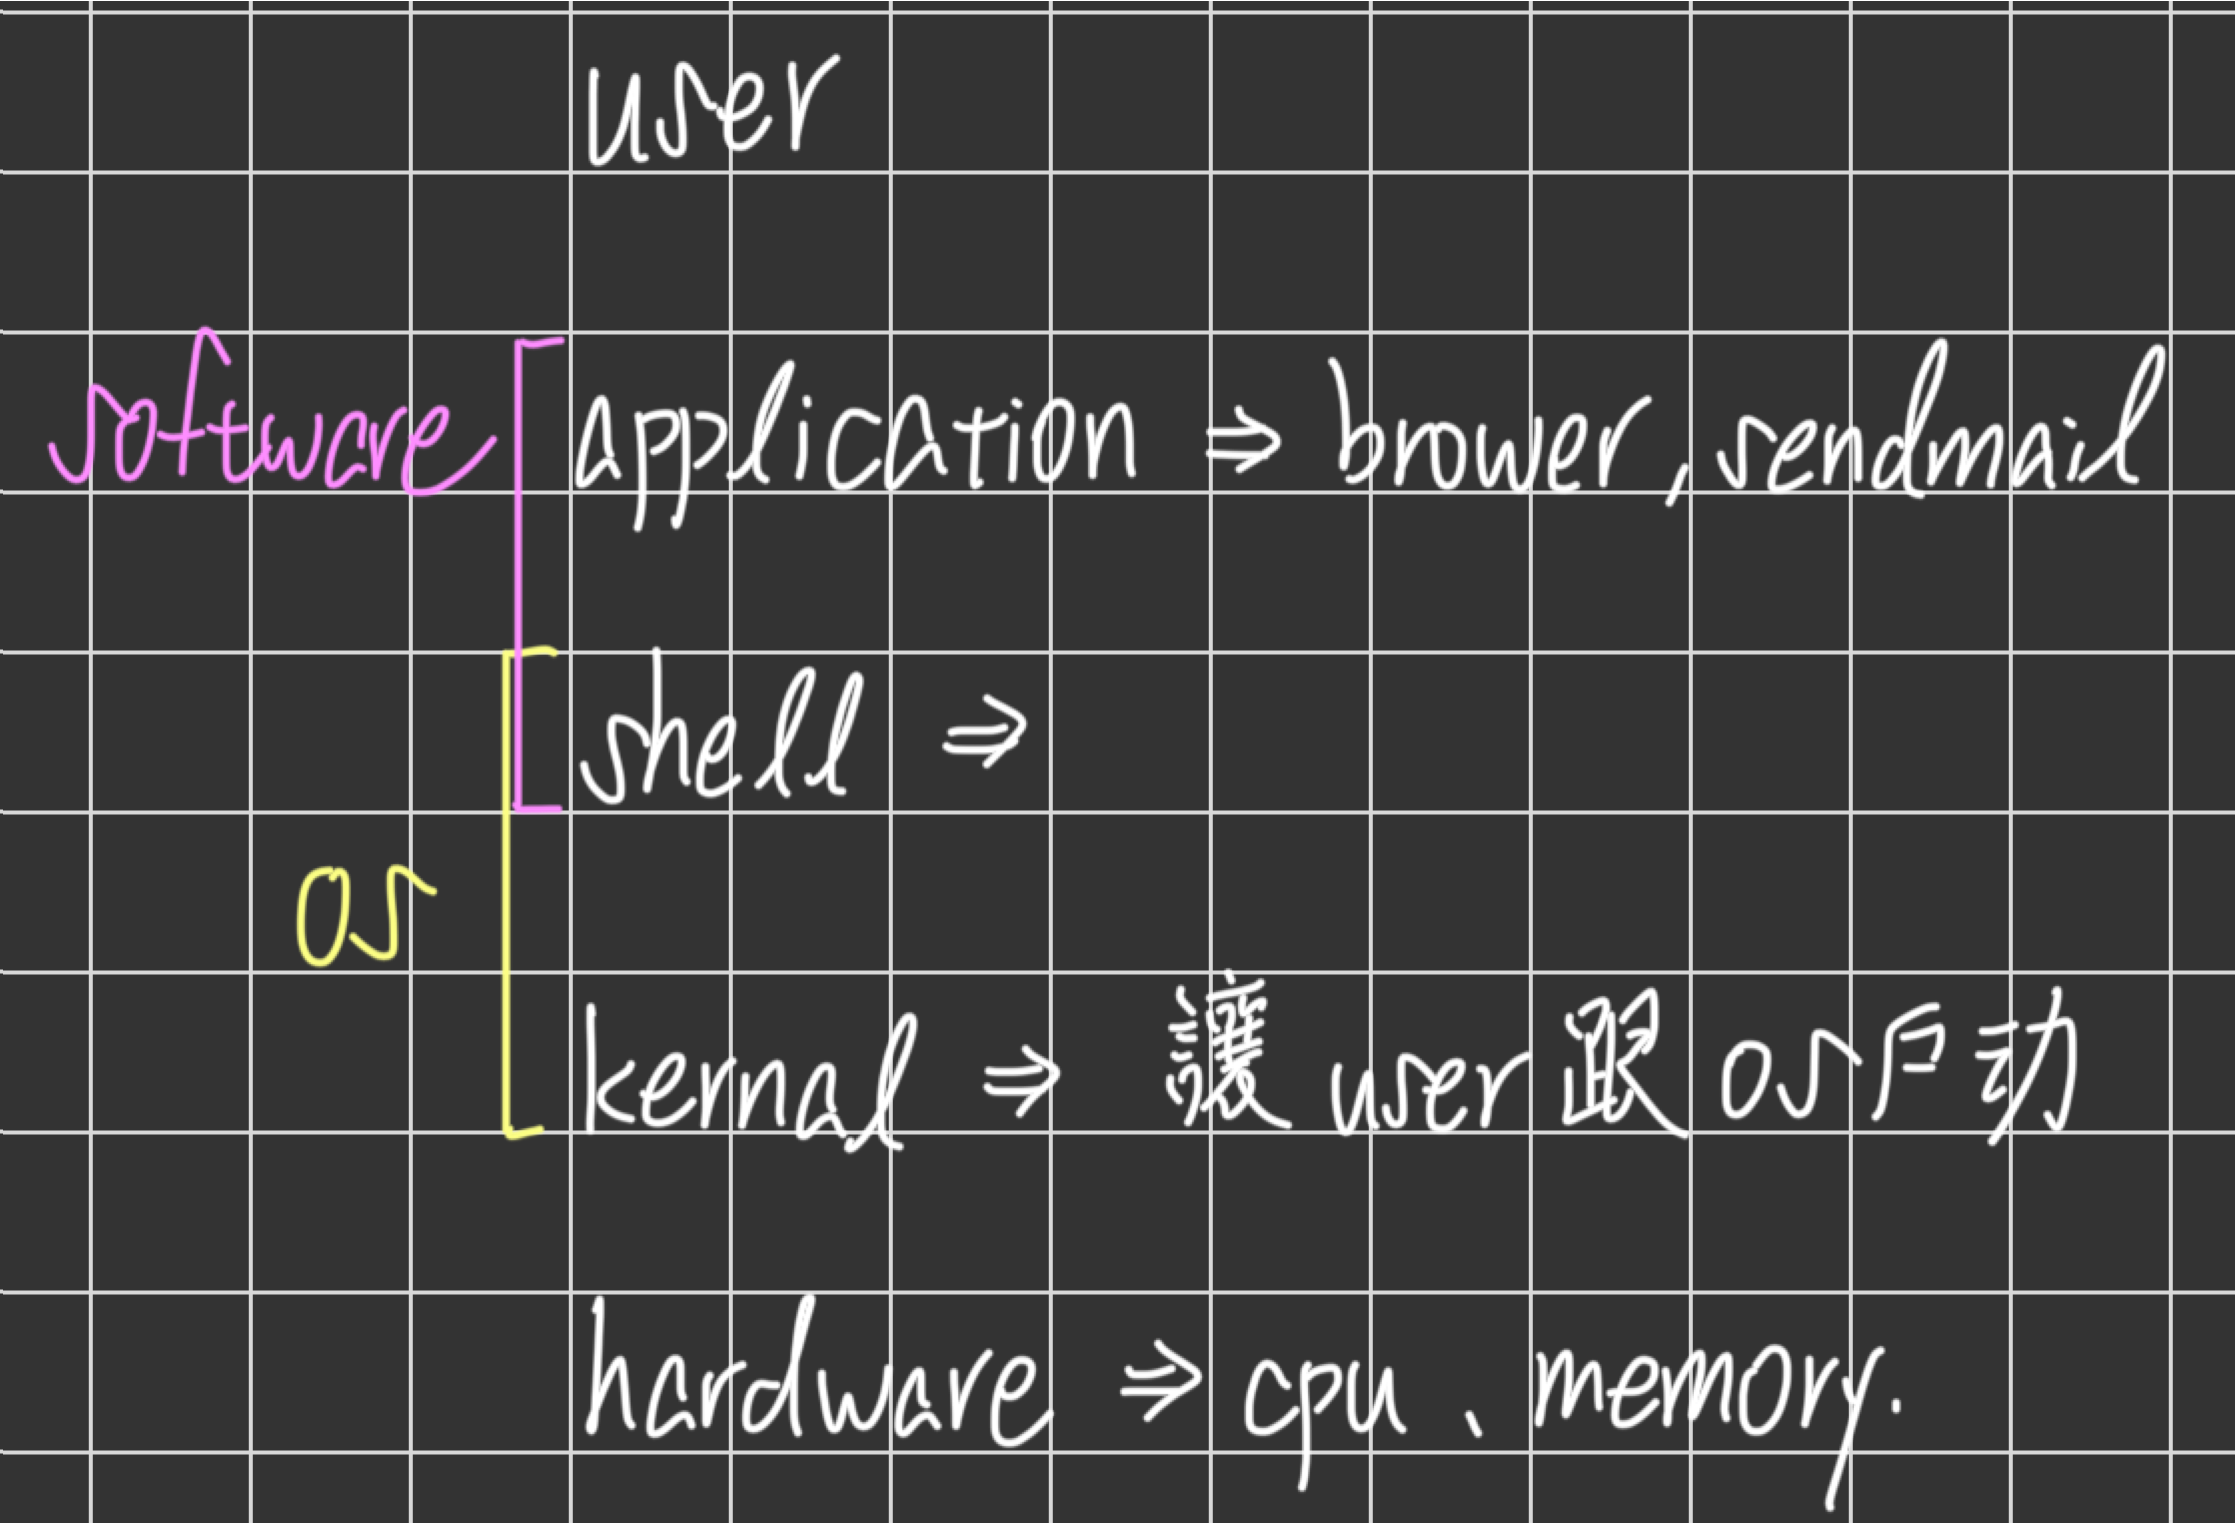 user
software application ⇒ brower, sendmail
shell ⇒
os
kernal ⇒ 讓 user 跟 os 启动
hardware ⇒ cpu、memory.